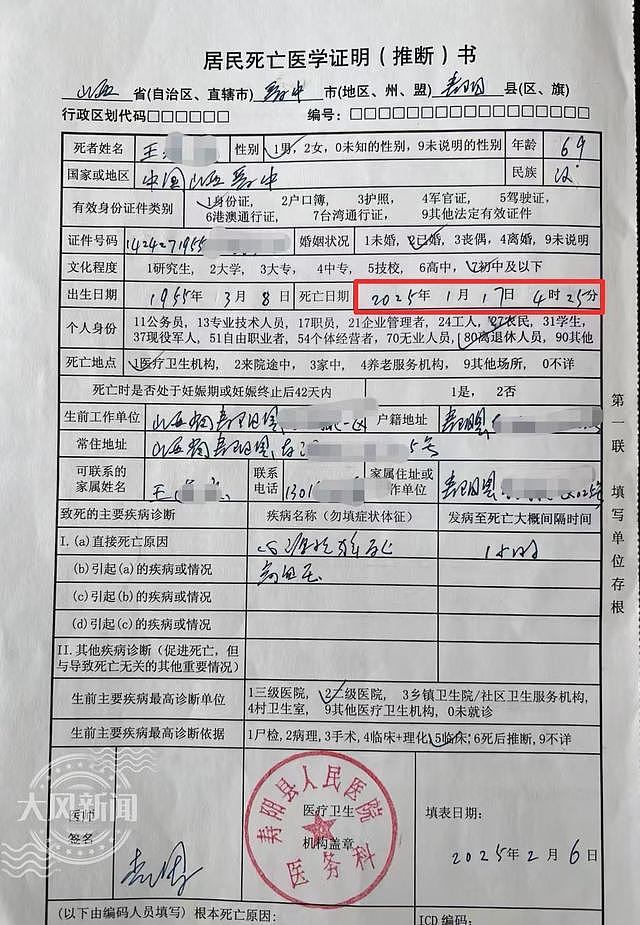 居民死亡医学证明（推断）书
山西 省(自治区、直辖市) 晋中 市(地区、州、盟) 寿阳 县(区、旗)
行政区划代码□□□□□□ 编号：□□□□□□□□□□□□□□□□□
死者姓名 王 性别 1男，2女，0未知的性别，9未说明的性别 年龄 69
国家或地区 中国山西晋中 民族 汉
有效身份证件类别 1身份证， 2户口簿， 3护照， 4军官证， 5驾驶证，
6港澳通行证， 7台湾通行证， 9其他法定有效证件
证件号码 1424271955 婚姻状况 1未婚，2已婚，3丧偶，4离婚，9未说明
文化程度 1研究生， 2大学， 3大专， 4中专， 5技校， 6高中， 7初中及以下
出生日期 1955年 3月 8日 死亡日期 2025年 1月 17日 4时 25分
个人身份 11公务员，13专业技术人员，17职员，21企业管理者，24工人，27农民，31学生，
37现役军人，51自由职业者，54个体经营者，70无业人员，80离退休人员，90其他
死亡地点 1医疗卫生机构，2来院途中，3家中，4养老服务机构，9其他场所，0不详
死亡时是否处于妊娠期或妊娠终止后42天内 1是，2否
生前工作单位 山西省寿阳县 户籍地址 寿阳县
常住地址 山西省寿阳县 5号
可联系的
家属姓名 王 联系
电话 1301 家属住址或
作单位 寿阳县
致死的主要疾病诊断 疾病名称（勿填症状体征） 发病至死亡大概间隔时间
I.(a)直接死亡原因 心源性猝死 1小时
(b)引起(a)的疾病或情况 高血压
(c)引起(b)的疾病或情况
(d)引起(c)的疾病或情况
II.其他疾病诊断（促进死亡，但
与导致死亡无关的其他重要情况）
生前主要疾病最高诊断单位 1三级医院，2二级医院， 3乡镇卫生院/社区卫生服务机构，
4村卫生室， 9其他医疗卫生机构，0未就诊
生前主要疾病最高诊断依据 1尸检，2病理，3手术，4临床+理化，5临床，6死后推断，9不详
医师
签名
医疗卫生
机构盖章
寿阳县人民医院
医务科
填表日期：
2025年2月6日
(以下由编码人员填写) 根本死亡原因： ICD编码：
第一联 填写单位存根
大风新闻